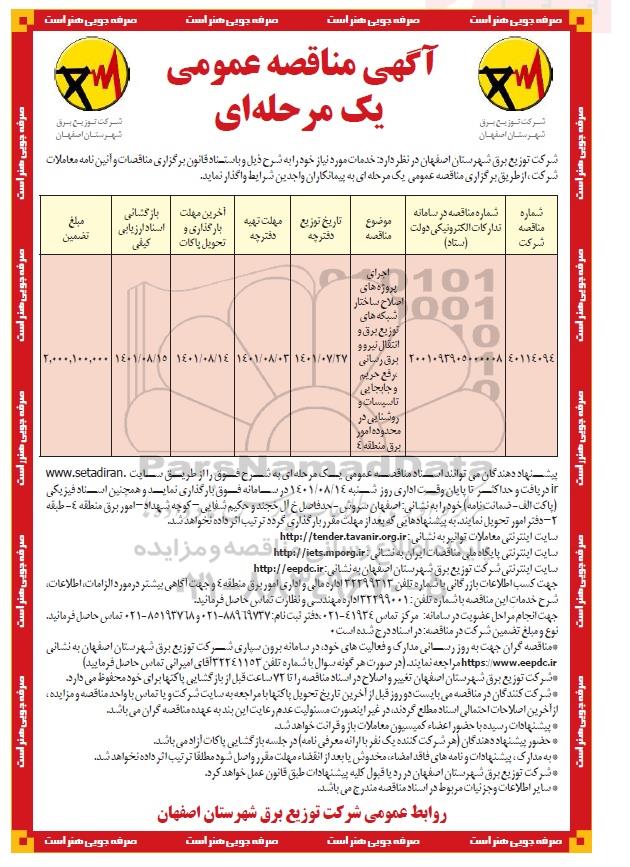 صرفه جویی هنر است صرفه جویی هنر است صرفه جویی هنر است صرفه جویی هنر است
آگهی مناقصه عمومی
یک مرحله‌ای
شرکت توزیع برق
شهرستان اصفهان
شرکت توزیع برق
شهرستان اصفهان
شرکت توزیع برق شهرستان اصفهان در نظر دارد: خدمات مورد نیاز خود را به شرح ذیل و باستناد قانون برگزاری مناقصات و آئین نامه معاملات
شرکت، از طریق برگزاری مناقصه عمومی یک مرحله ای به پیمانکاران واجدین شرایط واگذار نماید.
شماره مناقصه شرکت
شماره مناقصه در سامانه تدارکات الکترونیکی دولت (ستاد)
موضوع مناقصه
تاریخ توزیع دفترچه
مهلت تهیه دفترچه
آخرین مهلت بارگذاری و تحویل پاکات
بازگشائی اسناد ارزیابی کیفی
مبلغ تضمین
۴۰۱۱۴۰۹۴
۲۰۰۱۰۹۳۹۰۵۰۰۰۰۰۸
اجرای
پروژه های
اصلاح ساختار
شبکه های
توزیع برق و
انتقال نیرو و
برق رسانی
،رفع حریم
و جابجایی
تاسیسات و
روشنایی در
محدوده امور
برق منطقه ۴
۱۴۰۱/۰۷/۲۷
۱۴۰۱/۰۸/۰۳
۱۴۰۱/۰۸/۱۴
۱۴۰۱/۰۸/۱۵
۲,۰۰۰,۱۰۰,۰۰۰
پیشنهاد دهندگان می توانند اسناد مناقصه عمومی یک مرحله ای به شرح فوق را از طریق سایت www.setadiran.
ir دریافت و حداکثر تا پایان وقت اداری روز شنبه ۱۴۰۱/۰۸/۱۴ در سامانه فوق بارگذاری نمایند و همچنین اسناد فیزیکی
(پاکت الف-ضمانت نامه) خود را به نشانی: اصفهان سروش-حدفاصل خ آل خجند و حکیم شفایی - کوچه شهداد - امور برق منطقه ۴- طبقه
۲- دفتر امور تحویل نمایند. به پیشنهادهایی که بعد از مهلت مقرر بارگذاری گردد ترتیب اثر داده نخواهد شد.
سایت اینترنتی معاملات توانیر به نشانی: http://tender.tavanir.org.ir
سایت اینترنتی پایگاه ملی مناقصات ایران به نشانی: http://iets.mporg.ir
سایت اینترنتی شرکت توزیع برق شهرستان اصفهان به نشانی: http://eepdc.ir
جهت کسب اطلاعات بازرگانی با شماره تلفن ۳۲۲۹۹۲۱۳ اداره مالی و اداری امور برق منطقه ۴ و جهت آگاهی بیشتر در مورد الزامات، اطلاعات،
شرح خدمات این مناقصه با شماره تلفن: ۳۲۲۹۹۰۰۱ اداره مهندسی و نظارت تماس حاصل فرمائید.
جهت انجام مراحل عضویت در سامانه: مرکز تماس ۴۱۹۳۴-۰۲۱ ،دفتر ثبت نام: ۸۸۹۶۹۷۳۷-۰۲۱ و ۸۵۱۹۳۷۶۸-۰۲۱ تماس حاصل فرمائید.
نوع و مبلغ تضمین شرکت در مناقصه: در اسناد درج شده است
*مناقصه گران جهت به روز رسانی مدارک و فعالیت های خود، در سامانه برون سپاری شرکت توزیع برق شهرستان اصفهان به نشانی
https://www.eepdc.ir مراجعه نمایند. (در صورت هر گونه سوال با شماره تلفن ۳۲۲۴۱۱۵۳ آقای امیرانی تماس حاصل فرمایید)
*شرکت توزیع برق شهرستان اصفهان تغییر و اصلاح در اسناد مناقصه را تا ۷۲ ساعت قبل از بازگشایی پاکتها برای خود محفوظ می دارد.
*شرکت کنندگان در مناقصه می بایست دو روز قبل از آخرین تاریخ تحویل پاکتها با مراجعه به سایت شرکت و یا تماس با واحد مناقصه و مزایده ،
از آخرین اصلاحات احتمالی اسناد مطلع گردند. در غیر اینصورت مسئولیت عدم رعایت این بند به عهده مناقصه گران می باشد.
*پیشنهادات رسیده با حضور اعضاء کمیسیون معاملات باز و قرائت خواهد شد.
*حضور پیشنهاد دهندگان (هر شرکت کننده یک نفر با ارائه معرفی نامه) در جلسه بازگشایی پاکات آزاد می باشد.
*به مدارک ، پیشنهادات و نامه های فاقد امضاء، مخدوش یا بعد از انقضاء مهلت مقرر واصل شود مطلقا ترتیب اثر داده نخواهد شد.
*شرکت توزیع برق شهرستان اصفهان در رد یا قبول کلیه پیشنهادات طبق قانون عمل خواهد کرد.
*سایر اطلاعات و جزئیات مربوط در اسناد مناقصه مندرج می باشد.
روابط عمومی شرکت توزیع برق شهرستان اصفهان
صرفه جویی هنر است صرفه جویی هنر است صرفه جویی هنر است صرفه جویی هنر است
ParsNamadData